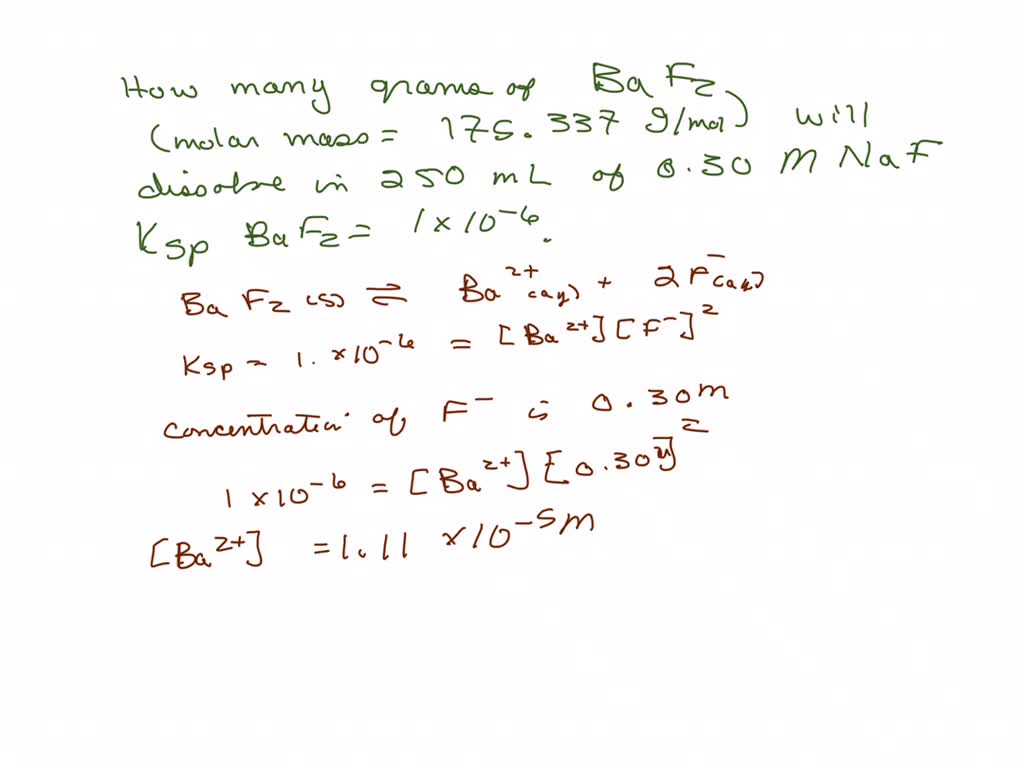 How many grams of BaF₂
(molar mass = 175.337 g/mol) will
dissolve in 250 mL of 0.30 M NaF
Ksp BaF₂ = 1 × 10⁻⁶.
BaF₂ (s) ⇌ Ba²⁺(aq) + 2F⁻(aq)
Ksp = 1. × 10⁻⁶ = [Ba²⁺][F⁻]²
concentration of F⁻ is 0.30 M
1 × 10⁻⁶ = [Ba²⁺][0.30M]²
[Ba²⁺] = 1.11 × 10⁻⁵ M